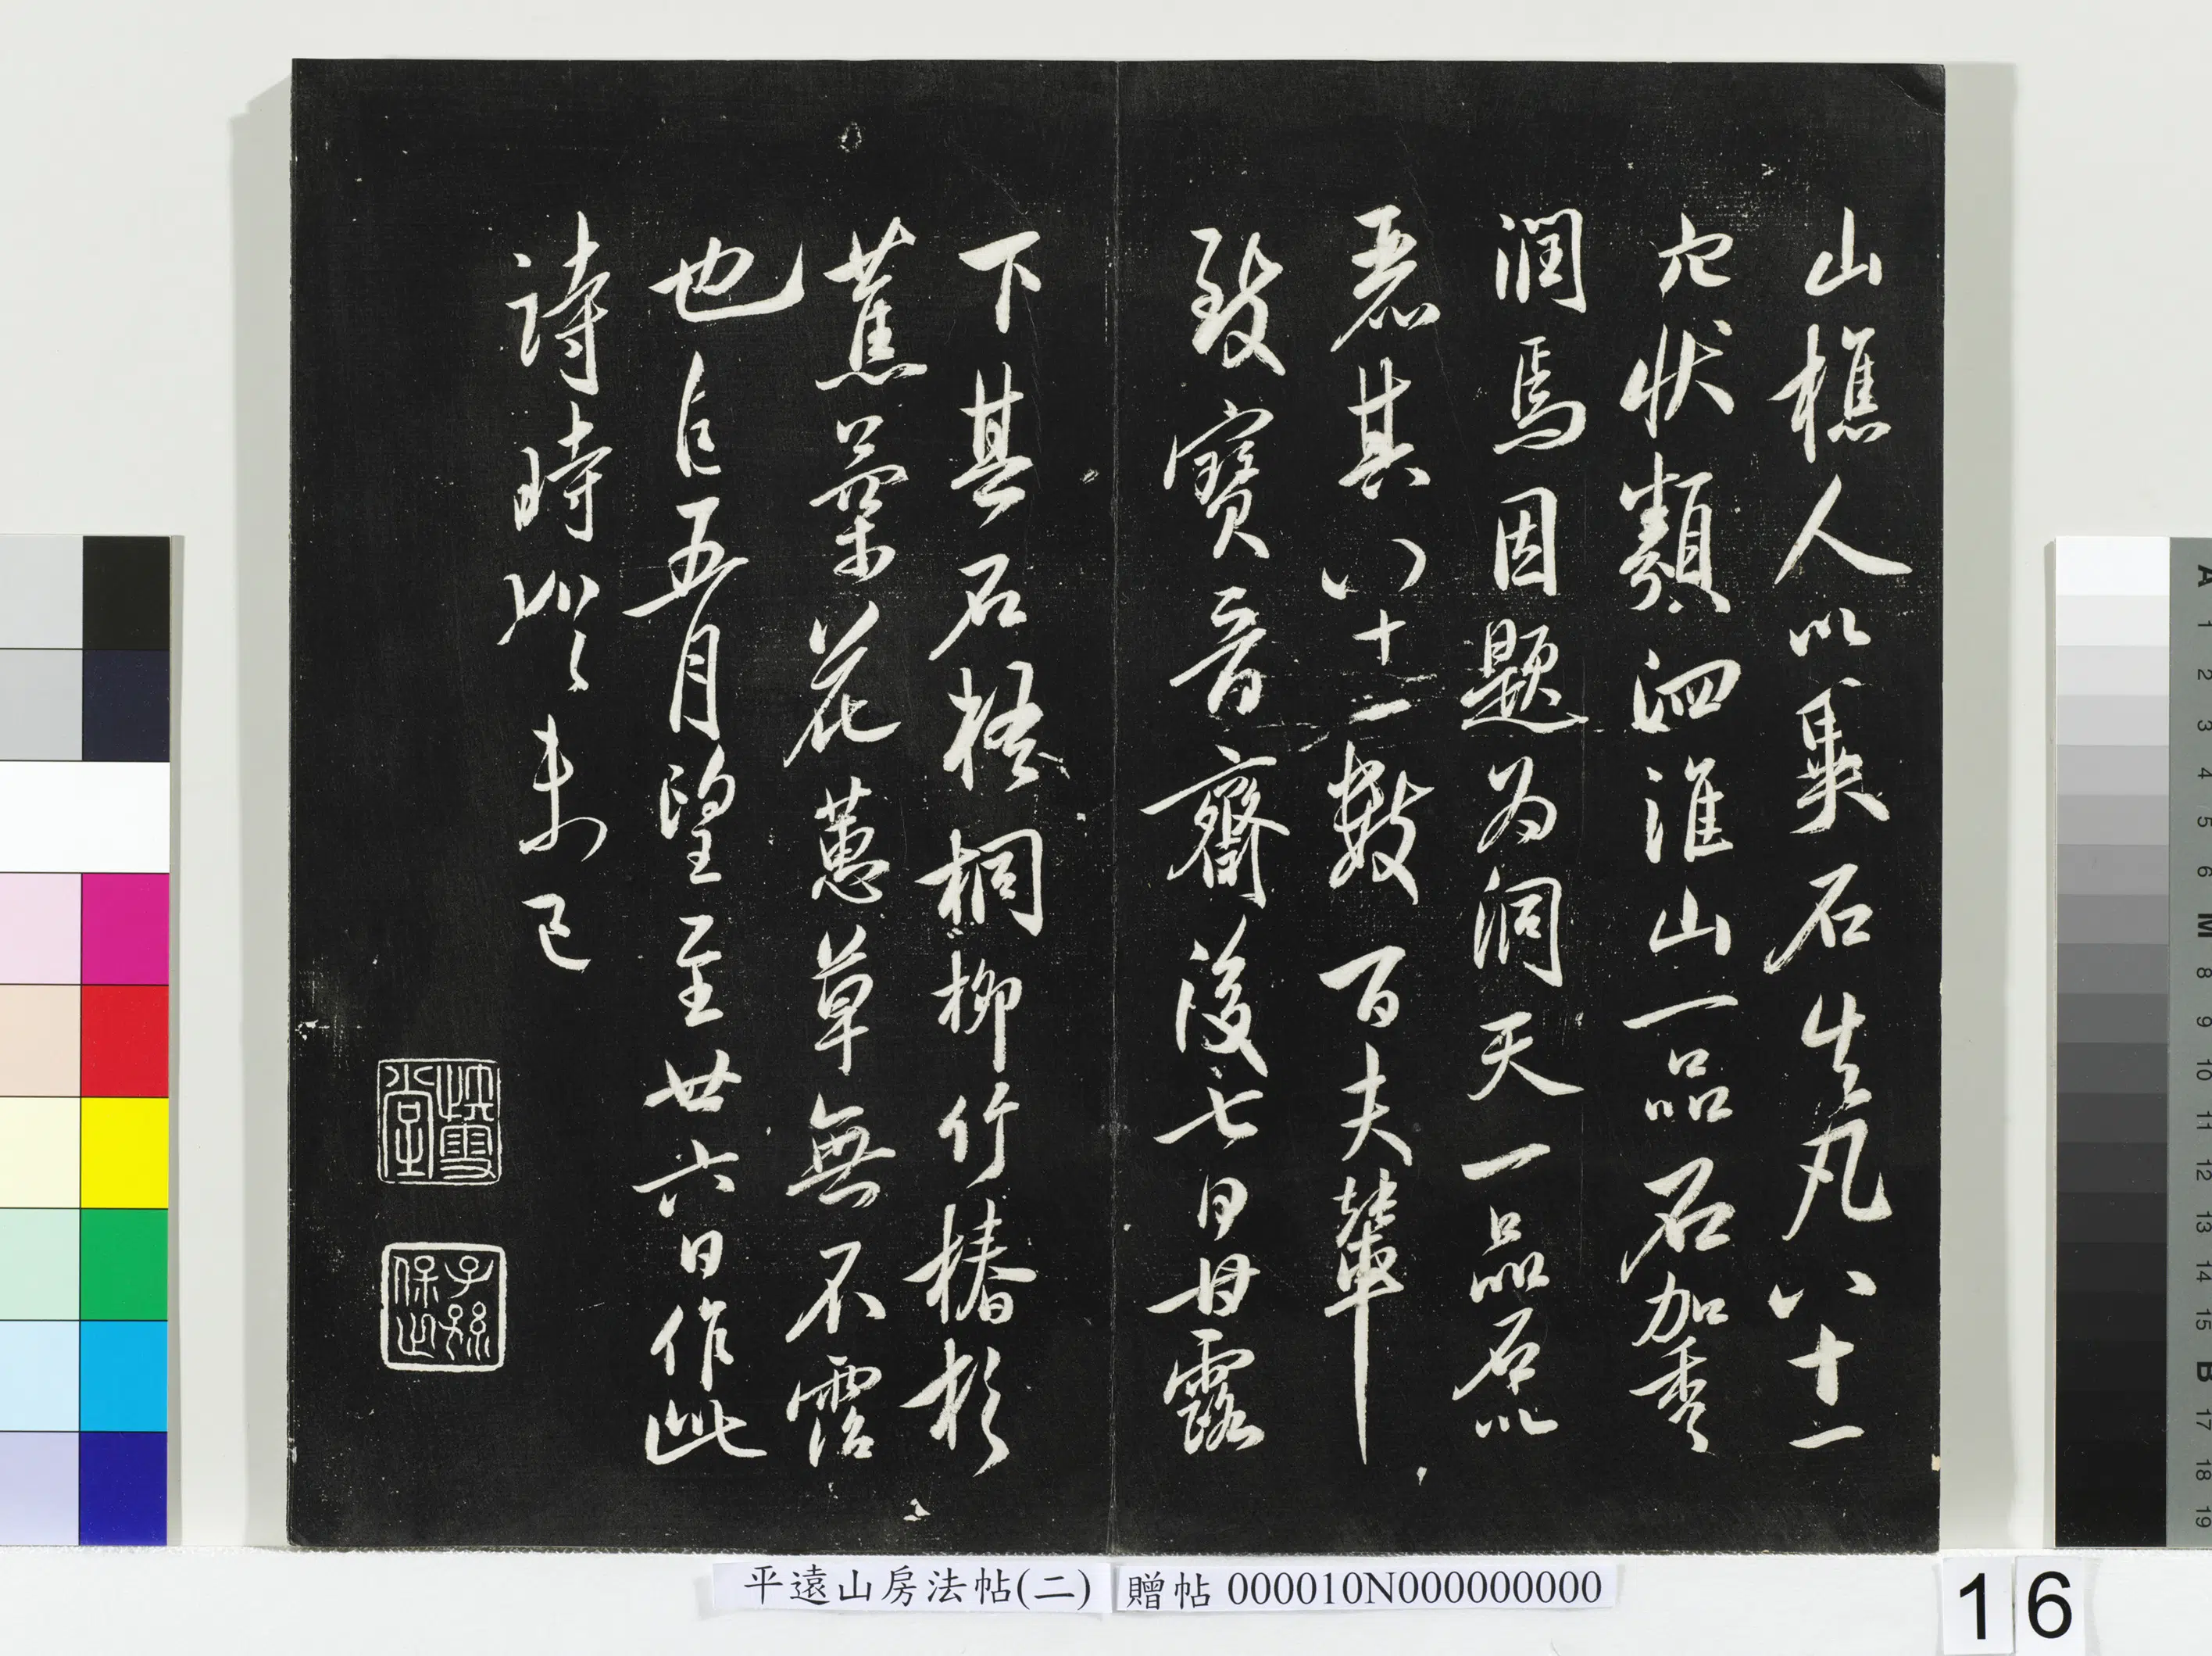 山樵人以異石告凡八十一
穴狀類泗淮山一品石加秀
潤焉因題為洞天一品石以
丑石其八十一數百夫輦
致寶晉齋後七日甘露
下其石梧桐柳竹椿杉
蕉萊花蕙草無不霑
也自五月望至廿六日作此
詩時猶未已
快雪堂
子孫保之
平遠山房法帖(二)
贈帖 000010N000000000
16
A 1 2 3 4 5 6 M 8 9 10 11 12 13 14 15 B 17 18 19